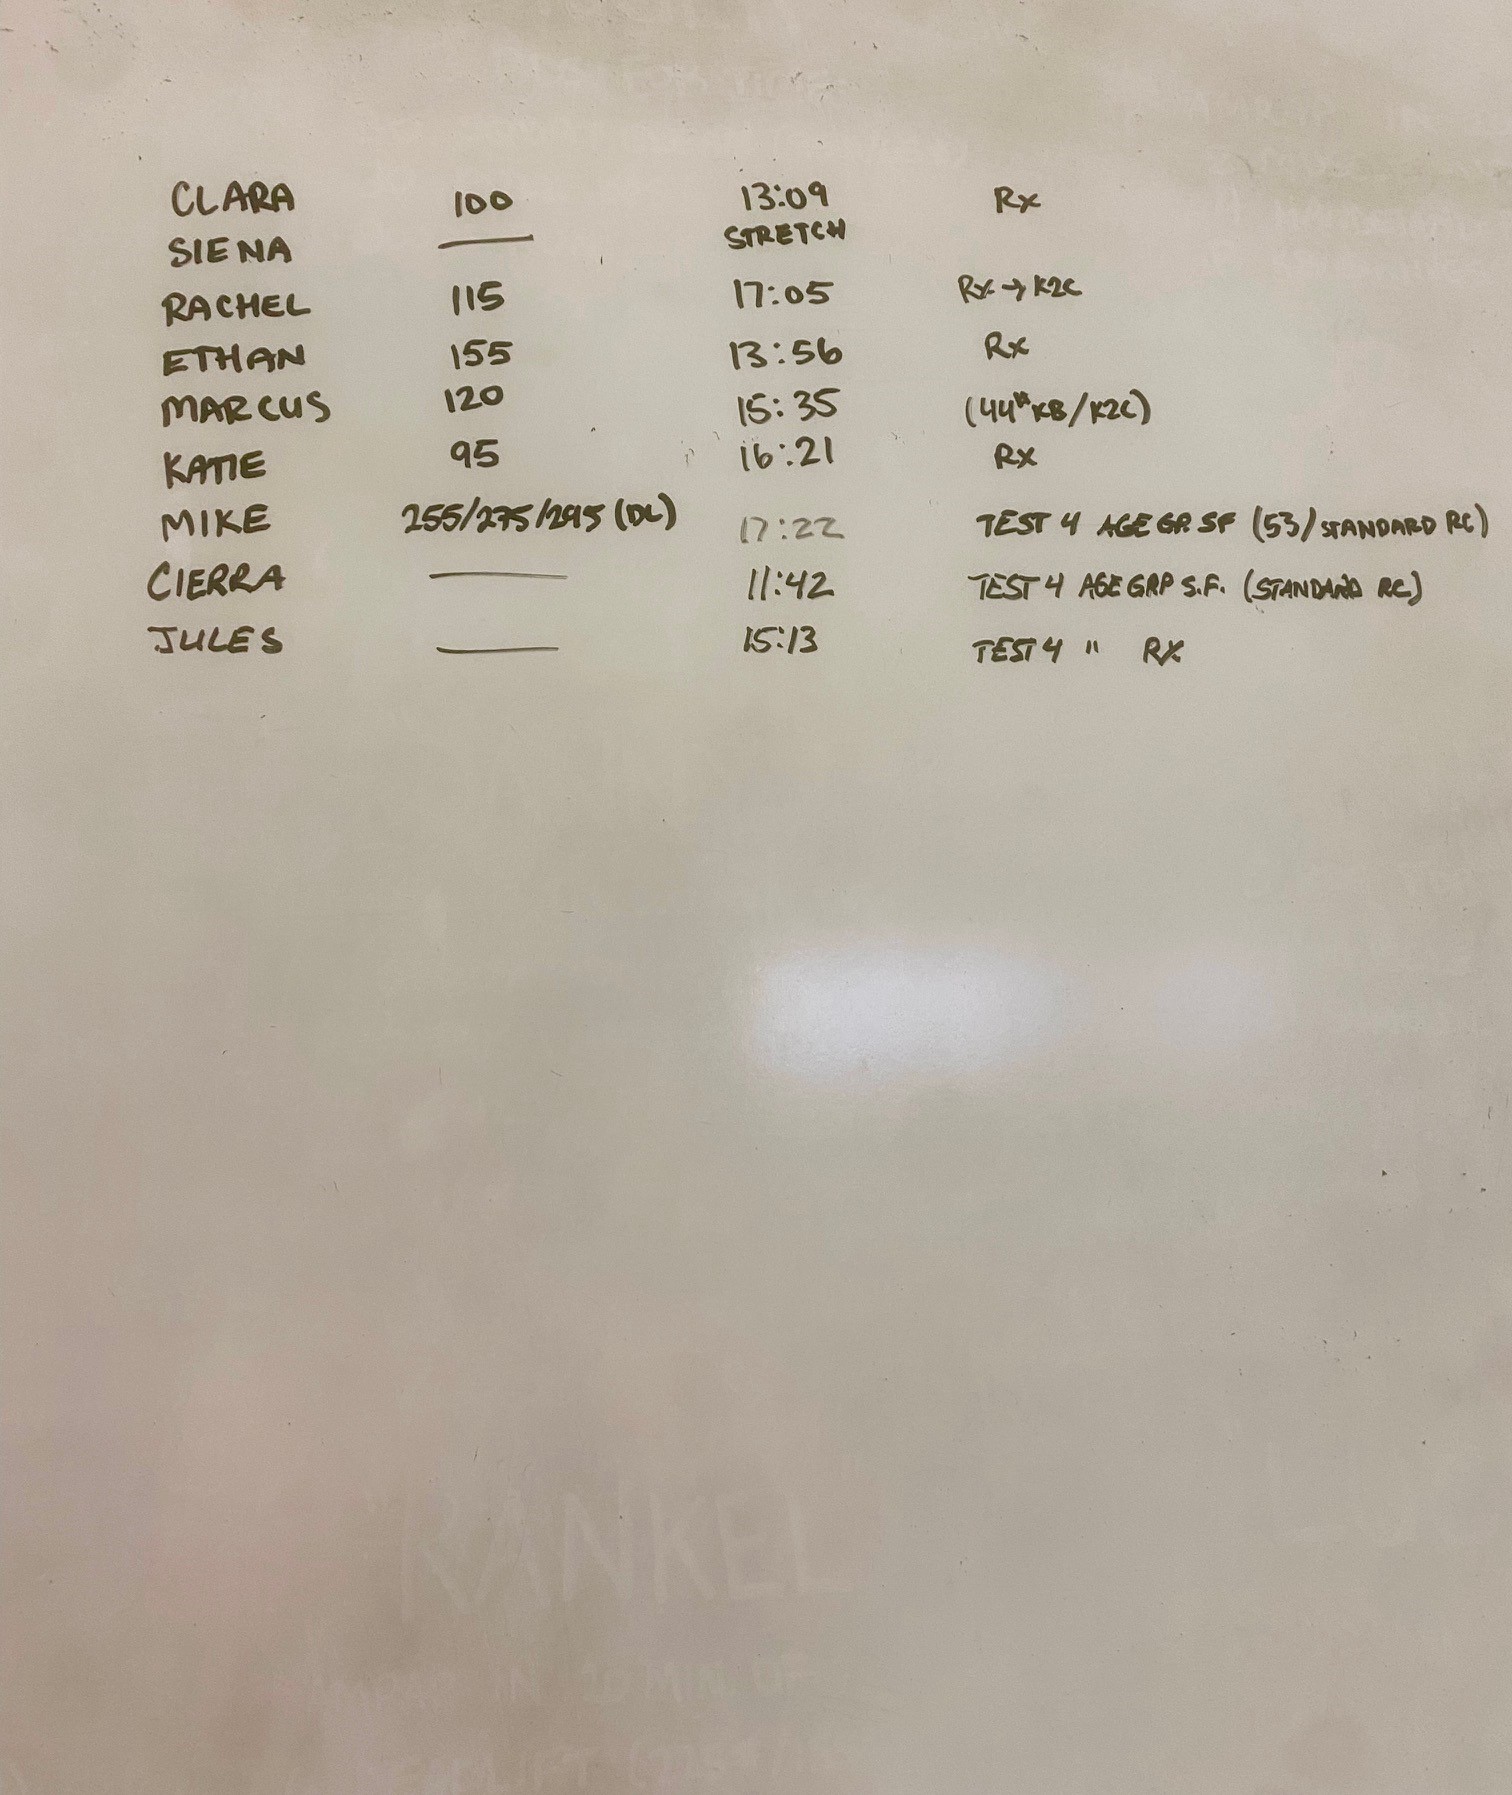 CLARA 100 13:09 Rx
SIENA —— STRETCH
RACHEL 115 17:05 Rx → K2C
ETHAN 155 13:56 Rx
MARCUS 120 15:35 (44# KB/K2C)
KATIE 95 16:21 Rx
MIKE 255/275/295 (DL) 17:22 TEST 4 AGE GP. SF (53/STANDARD RC)
CIERRA —— 11:42 TEST 4 AGE GRP S.F. (STANDARD RC)
JULES —— 15:13 TEST 4 " RX
RANKEL
IN 20 MIN OF